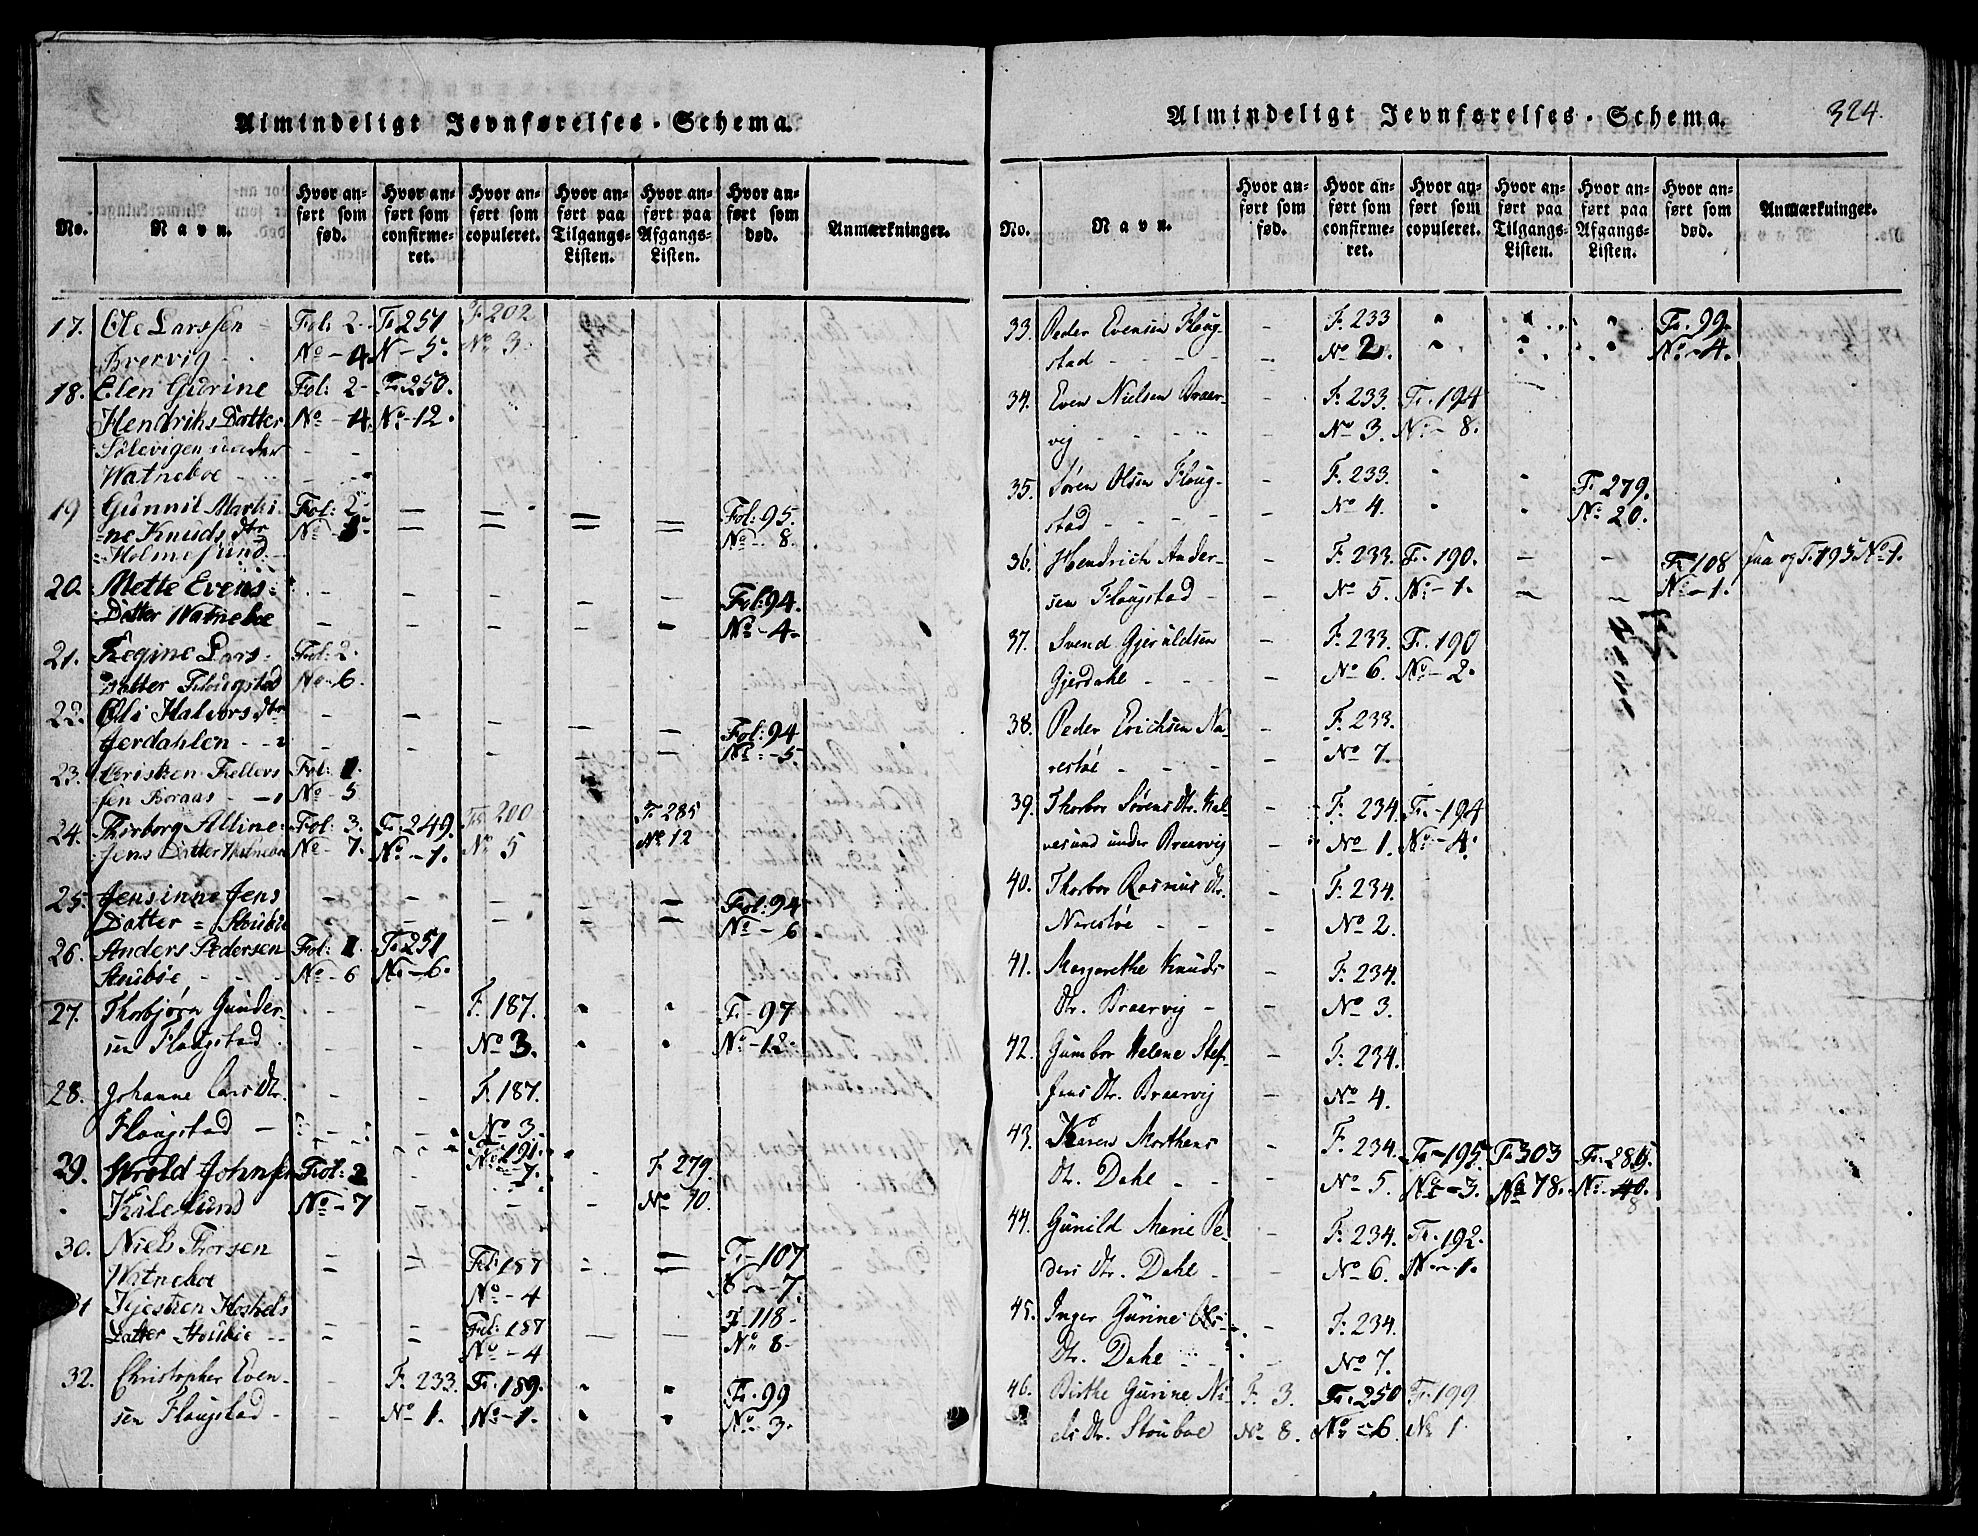 Almindeligt Jevnførelses-Schema.
No. Navn. Hvor anført som fød. Hvor anført som confirmeret. Hvor anført som copuleret. Hvor anført paa Tilgangs-Listen. Hvor anført paa Afgangs-Listen. Hvor anført som død. Anmærkninger.
17. Ole Larssen Fol: 2. F. 251 F. 202
Brervig No - 4. N - 5. No 3.
18. Elen Gurine Fol: 2 - F. 250.
Hendriks Datter No - 4. No - 12.
Solevigen under
Watneboe
19 Gunnil Marti- Fol: 2 - Fol: 95.
ne Knuds dtr No - 5 No - 8.
Holmesund
20. Mette Evens- Fol: 94.
Datter Watneboe No - 4.
21. Regine Lars- Fol: 2.
Datter Flougstad No - 6.
22. Oli Halvors dtr Fol: 94
Jerdahlen No - 5
23. Crisken Tellefs Fol: 1.
sen Boraas No - 5
24. Thorborg Alline Fol: 3. F. 249. F. 200 F. 285
Jens Datter No - 7. No - 1. No 5 No 12
25. Jensinne Jens Fol: 94
Datter = Stoubøe No - 6
26. Anders Pedersen Fol: 1. F. 251
Stoubøe No - 6 No - 6.
27. Thorbjørn Gunder- F. 187. F. 97
sen Flougstad No 3. No - 12.
28. Johanne Lars Dtr. F. 187.
Flougstad No 3.
29. Wrold Johnsen Fol: 2 F. 191. F. 279.
Kalesund No - 7 No - 7. No 10.
30. Niels Thorsen Fol: 187 F. 107
Watneboe No - 4 No - 7.
31 Kjestren Hoskels Fol: 187 F. 118
Datter Stoubøe No - 4 No 8
32. Christopher Even- F. 233. F. 189. F. 99
sen Flougstad No 1. No - 1. No - 3.
Almindeligt Jevnførelses-Schema. 324.
No. Navn. Hvor anført som fød. Hvor anført som confirmeret. Hvor anført som copuleret. Hvor anført paa Tilgangs-Listen. Hvor anført paa Afgangs-Listen. Hvor anført som død. Anmærkninger.
33. Peder Evensen Floug- F. 233 F. 99.
stad No 2. No - 4.
34. Even Nielsen Braer- F. 233. F. 194
vij No 3. No - 8.
35. Søren Olsen Floug- F. 233. F. 279.
stad No 4. No 20.
36. Hendrich Ander- F. 233. F. 190. F. 108 saa og F. 193 No 1.
sen Flougstad No 5. No - 1. No - 1.
37. Svend Gjeruldsen F. 233. F. 190
Gjerdahl No 6. No - 2.
38. Peder Erichsen Na- F. 233.
restøe No 7.
39. Thorbor Sørens Dtr. Kal- F. 234. F. 194
vesund under Braervij No 1. No - 4.
40. Thorbor Rasmus Dtr. F. 234.
Narestøe No 2.
41. Margarethe Knuds F. 234.
Dtr. Braervij No 3.
42. Gumbor Helene Stef- F. 234.
fens Dtr. Braervij No 4.
43. Karen Morthens F. 234. F. 195 F. 303 F. 286.
Dtr. Dahl No 5. No - 3. No 78. No 40.
8
44. Gunild Marie Pe- F. 234. F. 192.
ders Dtr. Dahl No 6. No - 1.
45. Inger Gurine Ols- F. 234.
Dtr. Dahl No 7.
46. Birthe Gurine Ni- F. 3. F. 250 F. 199
els Dtr. Stouboe No 8. No - 6 No 1